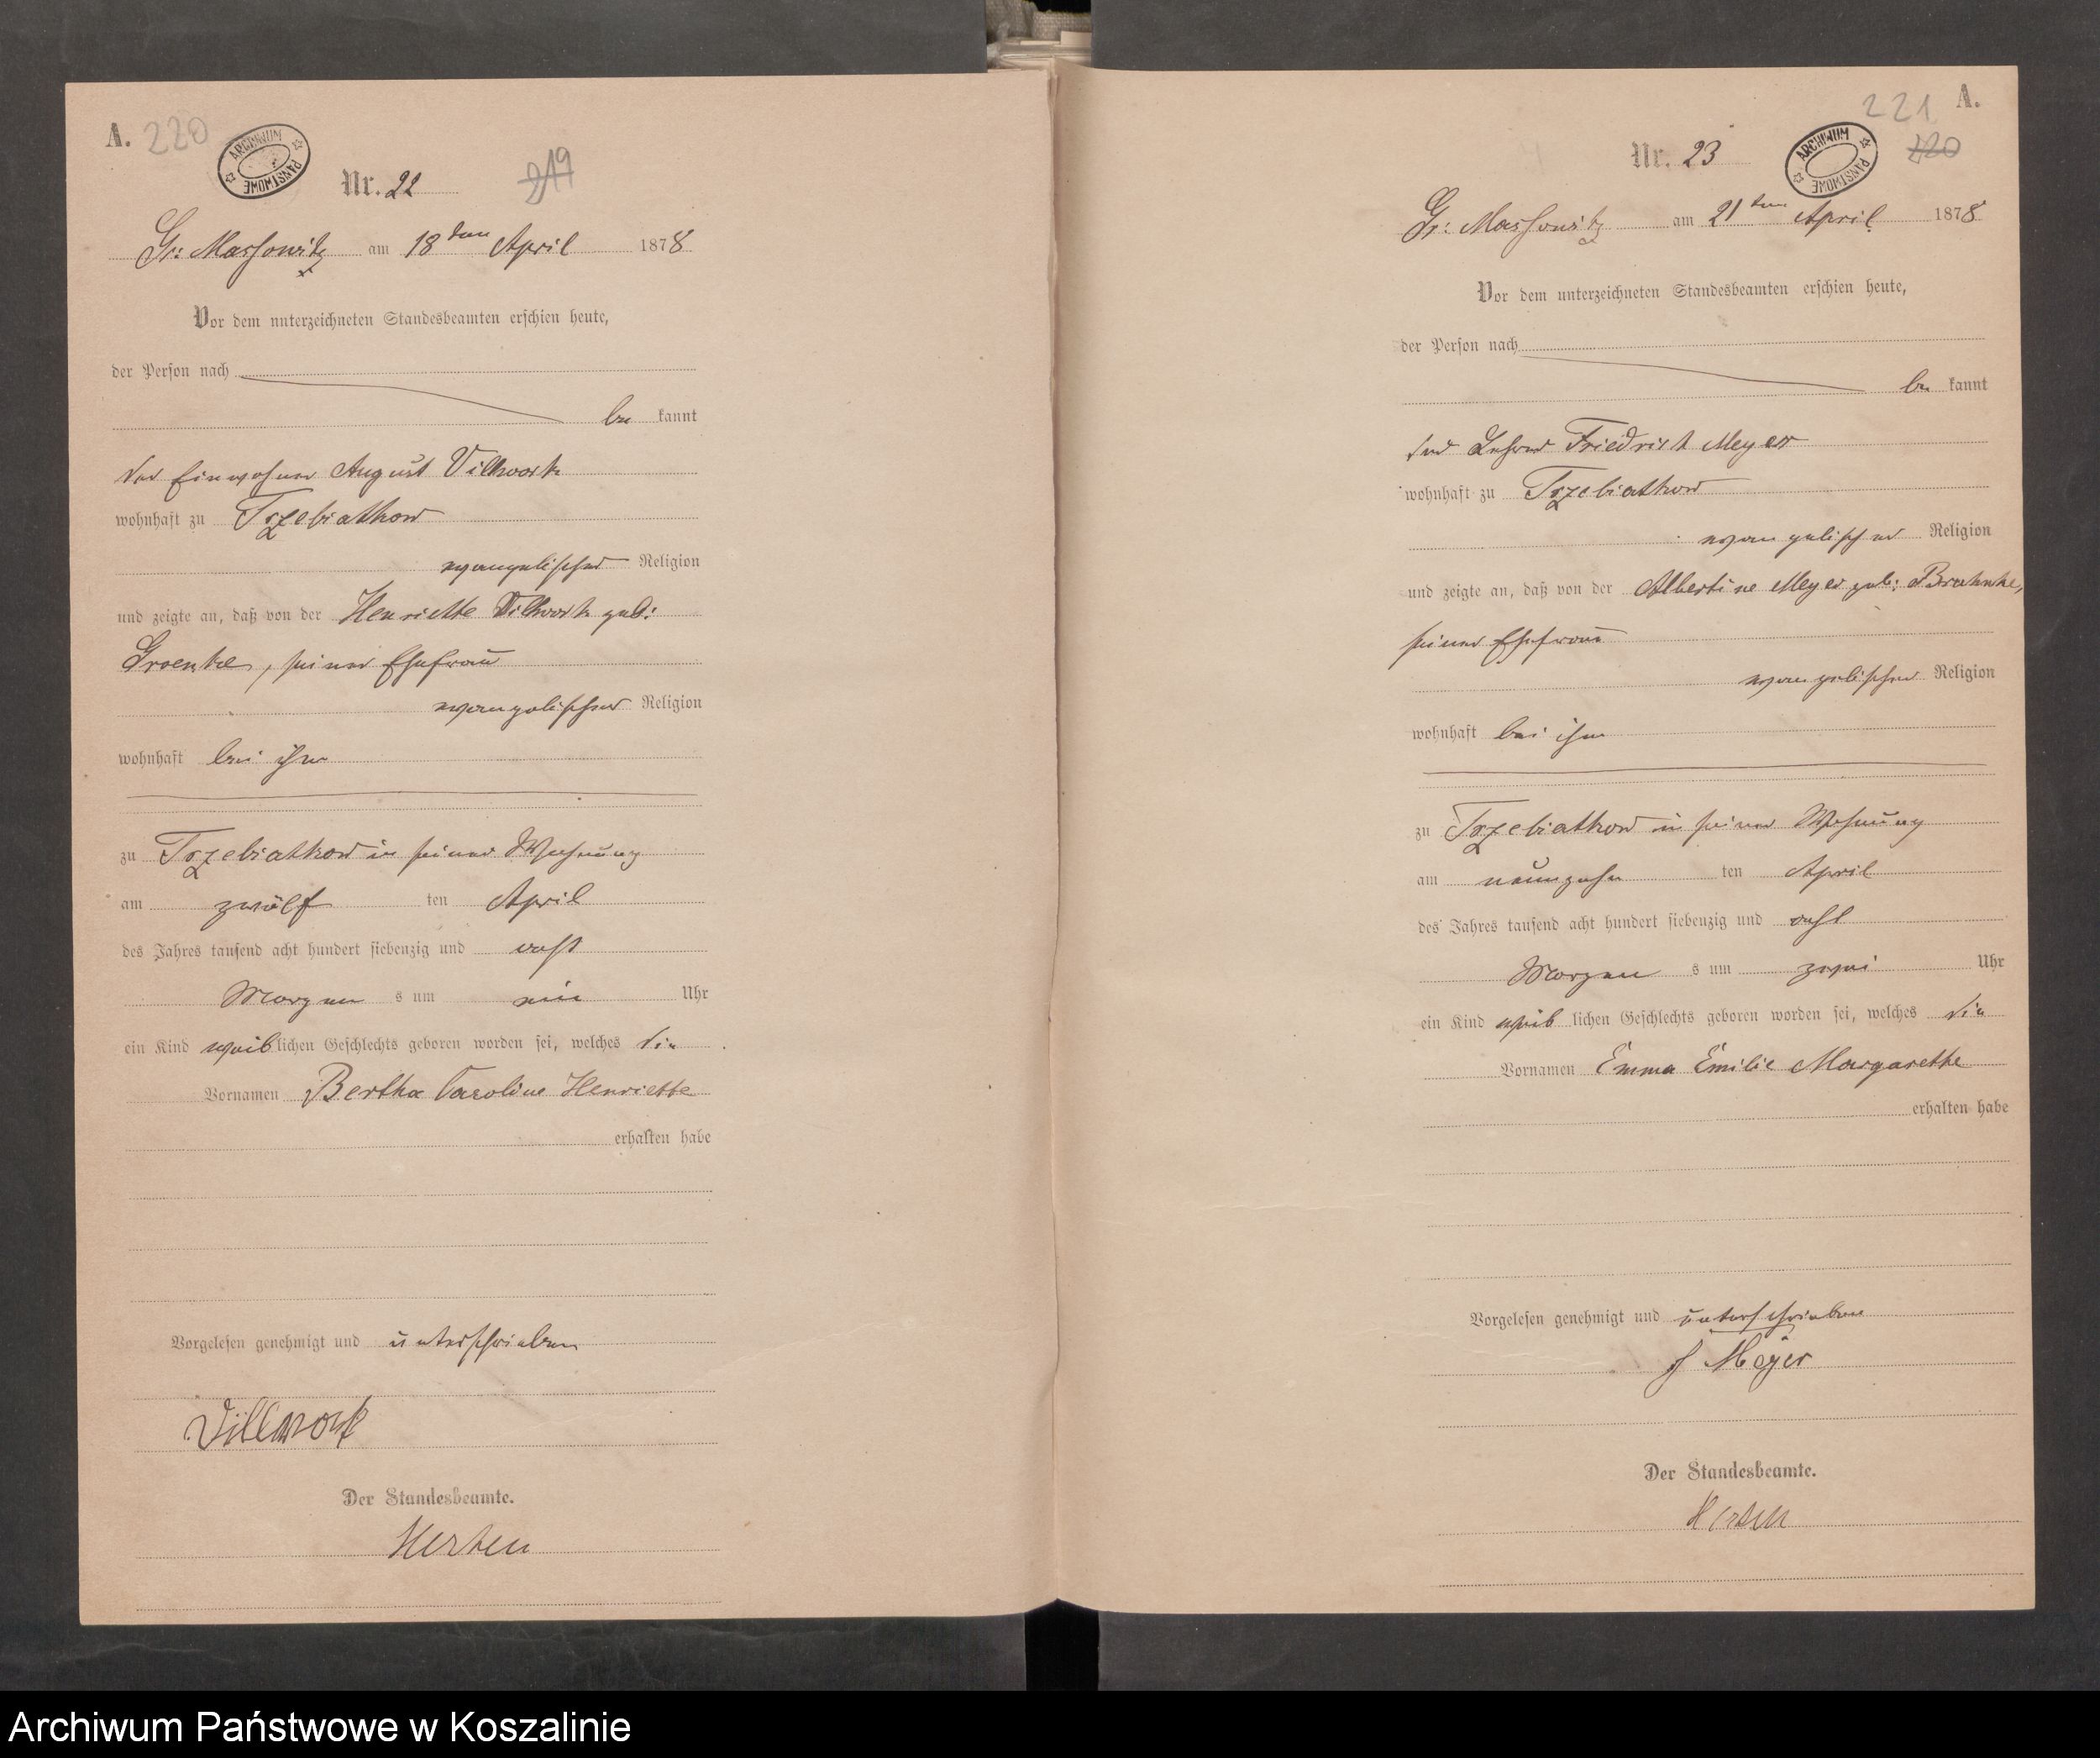 A. 220
ARCHIWUM PAŃSTWOWE
Nr. 22
219
Gr: Massowitz am 18ten April 1878
Vor dem unterzeichneten Standesbeamten erschien heute,
der Person nach
be kannt
der Einwohner August Villwock
wohnhaft zu Trzebiatkow
evangelischer Religion
und zeigte an, daß von der Henriette Villwock geb:
Groenke, seiner Ehefrau
evangelischer Religion
wohnhaft bei ihm
zu Trzebiatkow in seiner Wohnung
am zwölf ten April
des Jahres tausend acht hundert siebenzig und acht
Morgen s um ein Uhr
ein Kind weib lichen Geschlechts geboren worden sei, welches die
Vornamen Bertha Caroline Henriette
erhalten habe
Vorgelesen genehmigt und unterschrieben
Villwock
Der Standesbeamte.
Herten
221 A.
ARCHIWUM PAŃSTWOWE
220
Nr. 23
Gr: Massowitz am 21ten April 1878
Vor dem unterzeichneten Standesbeamten erschien heute,
der Person nach
be kannt
der Lehrer Friedrich Meyer
wohnhaft zu Trzebiatkow
evangelischer Religion
und zeigte an, daß von der Albertine Meyer geb: Brahnke,
seiner Ehefrau
evangelischer Religion
wohnhaft bei ihm
zu Trzebiatkow in seiner Wohnung
am neunzehn ten April
des Jahres tausend acht hundert siebenzig und acht
Morgen s um zwei Uhr
ein Kind weib lichen Geschlechts geboren worden sei, welches die
Vornamen Emma Emilie Margarethe
erhalten habe
Vorgelesen genehmigt und unterschrieben
F Meyer
Der Standesbeamte.
Herten
Archiwum Państwowe w Koszalinie